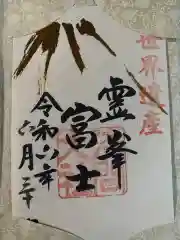 世界遺産
霊峯
富士
令和六年
六月三